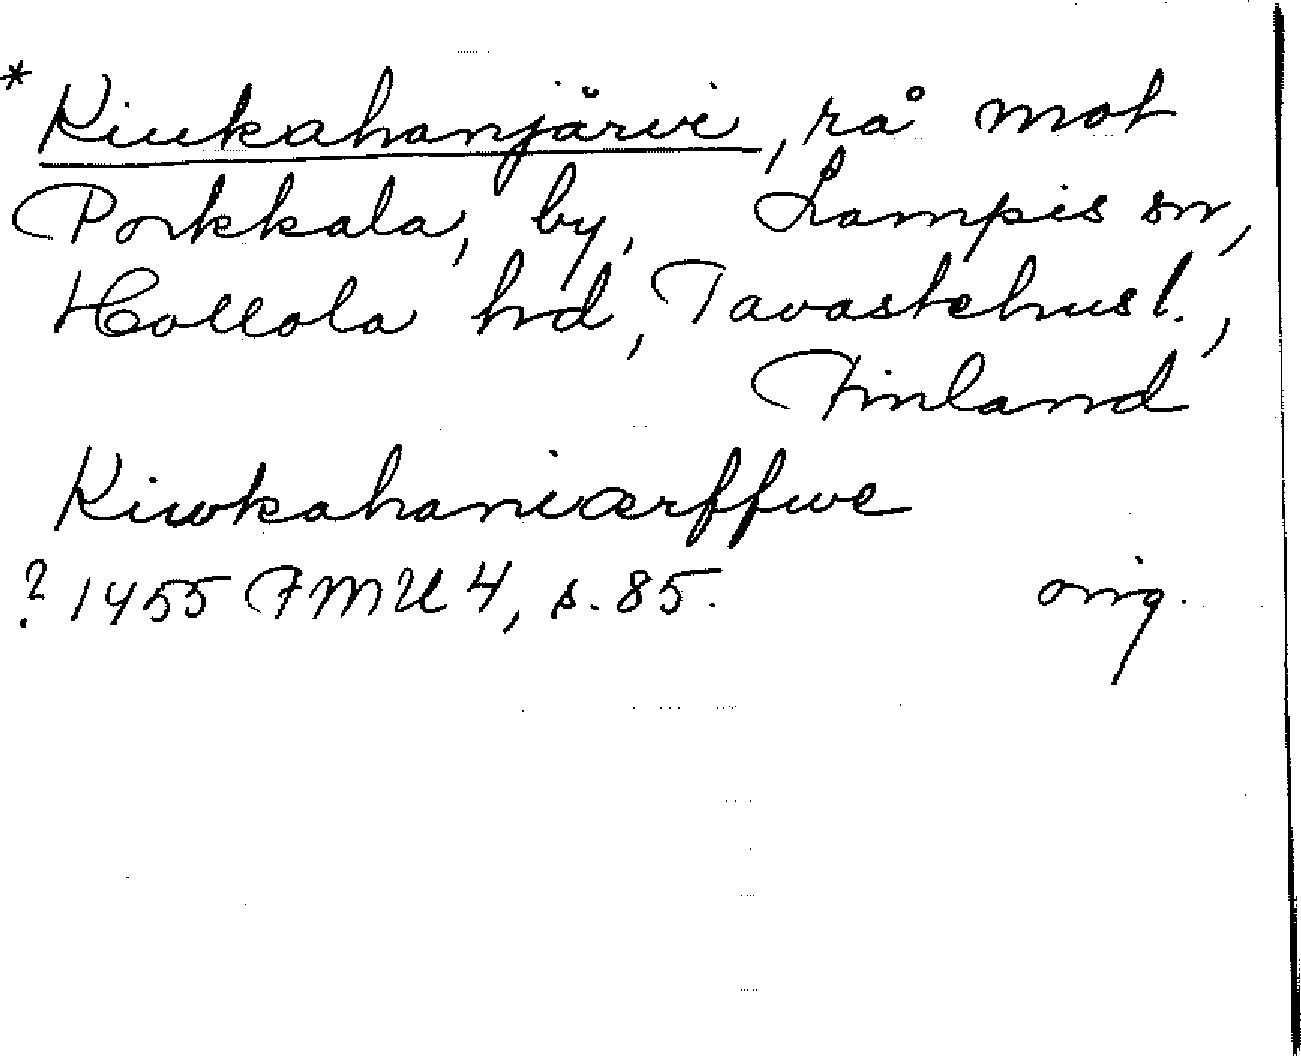 * Kiukahanjärvi, rå mot
Porkkala, by, Lampis sn,
Hollola hd, Tavastehus l.,
Finland
Kiwkahaniærffwe
? 1455 FMU 4, s. 85. orig.